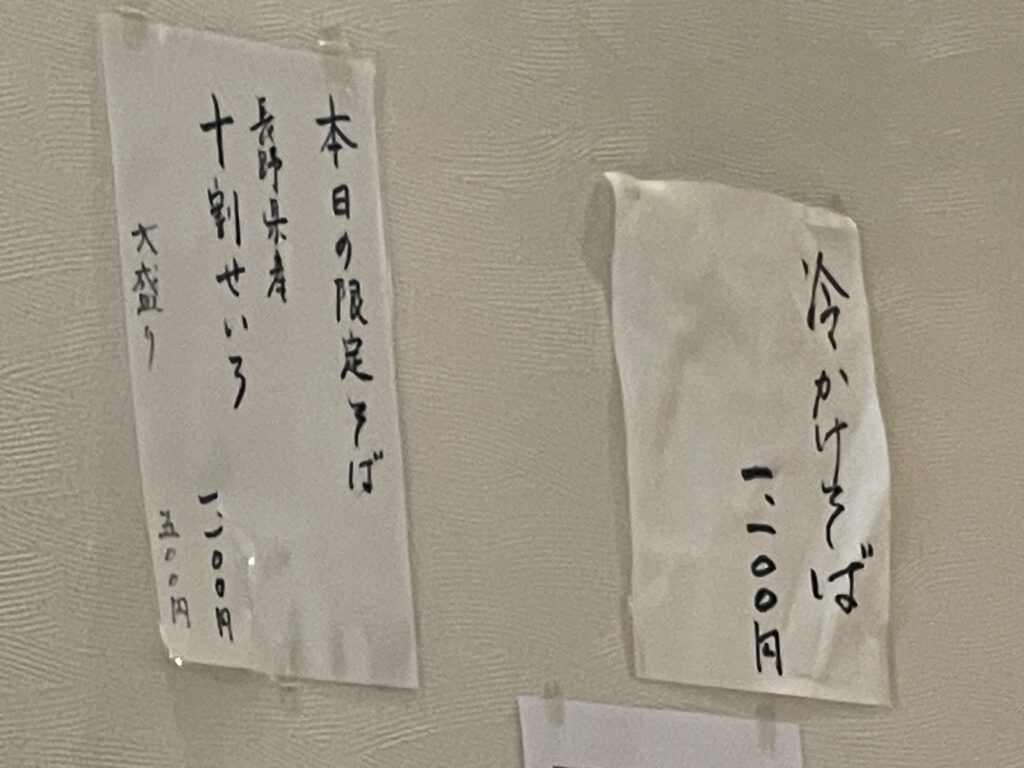 本日の限定そば
長野県産
十割せいろ 一、二〇〇円
大盛り 五〇〇円
冷かけそば
一、一〇〇円